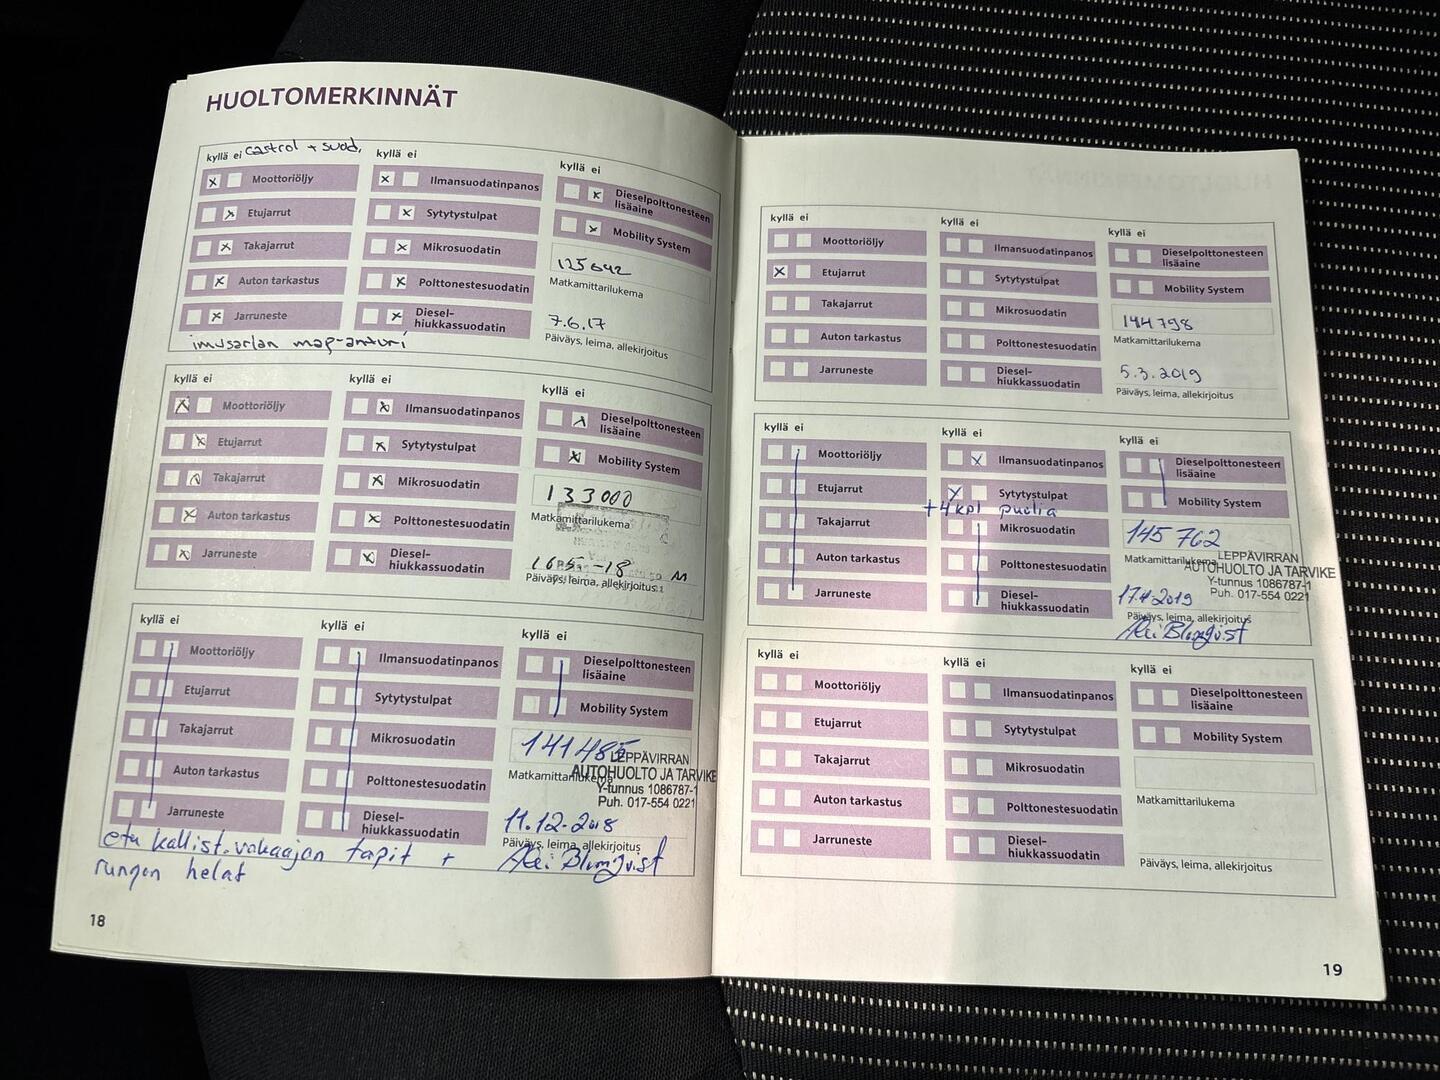 HUOLTOMERKINNÄT
kyllä ei Castrol + suod.
Moottoriöljy
Etujarrut
Takajarrut
Auton tarkastus
Jarruneste
imusarjan map-anturi
kyllä ei
Ilmansuodatinpanos
Sytytystulpat
Mikrosuodatin
Polttonestesuodatin
Diesel-
hiukkassuodatin
kyllä ei
Dieselpolttonesteen
lisäaine
Mobility System
125642
Matkamittarilukema
7.6.17
Päiväys, leima, allekirjoitus
kyllä ei
Moottoriöljy
Etujarrut
Takajarrut
Auton tarkastus
Jarruneste
kyllä ei
Ilmansuodatinpanos
Sytytystulpat
Mikrosuodatin
Polttonestesuodatin
Diesel-
hiukkassuodatin
kyllä ei
Dieselpolttonesteen
lisäaine
Mobility System
133000
Matkamittarilukema
Päiväys, leima, allekirjoitus
kyllä ei
Moottoriöljy
Etujarrut
Takajarrut
Auton tarkastus
Jarruneste
kyllä ei
Ilmansuodatinpanos
Sytytystulpat
Mikrosuodatin
Polttonestesuodatin
Diesel-
hiukkassuodatin
kyllä ei
Dieselpolttonesteen
lisäaine
Mobility System
141485
LEPPÄVIRRAN
Matkamittarilukema
AUTOHUOLTO JA TARVIKE
Y-tunnus 1086787-1
Puh. 017-554 0221
11.12.2018
Päiväys, leima, allekirjoitus
Blomqvist
etu kallist.vakaajan tapit +
rungon helat
18
kyllä ei
Moottoriöljy
Etujarrut
Takajarrut
Auton tarkastus
Jarruneste
kyllä ei
Ilmansuodatinpanos
Sytytystulpat
Mikrosuodatin
Polttonestesuodatin
Diesel-
hiukkassuodatin
kyllä ei
Dieselpolttonesteen
lisäaine
Mobility System
144798
Matkamittarilukema
5.3.2019
Päiväys, leima, allekirjoitus
kyllä ei
Moottoriöljy
Etujarrut
Takajarrut
Auton tarkastus
Jarruneste
kyllä ei
Ilmansuodatinpanos
Sytytystulpat
+4kpl puolia
Mikrosuodatin
Polttonestesuodatin
Diesel-
hiukkassuodatin
kyllä ei
Dieselpolttonesteen
lisäaine
Mobility System
145762
LEPPÄVIRRAN
Matkamittarilukema
AUTOHUOLTO JA TARVIKE
Y-tunnus 1086787-1
Puh. 017-554 0221
17.4.2019
Päiväys, leima, allekirjoitus
Blomqvist
kyllä ei
Moottoriöljy
Etujarrut
Takajarrut
Auton tarkastus
Jarruneste
kyllä ei
Ilmansuodatinpanos
Sytytystulpat
Mikrosuodatin
Polttonestesuodatin
Diesel-
hiukkassuodatin
kyllä ei
Dieselpolttonesteen
lisäaine
Mobility System
Matkamittarilukema
Päiväys, leima, allekirjoitus
19